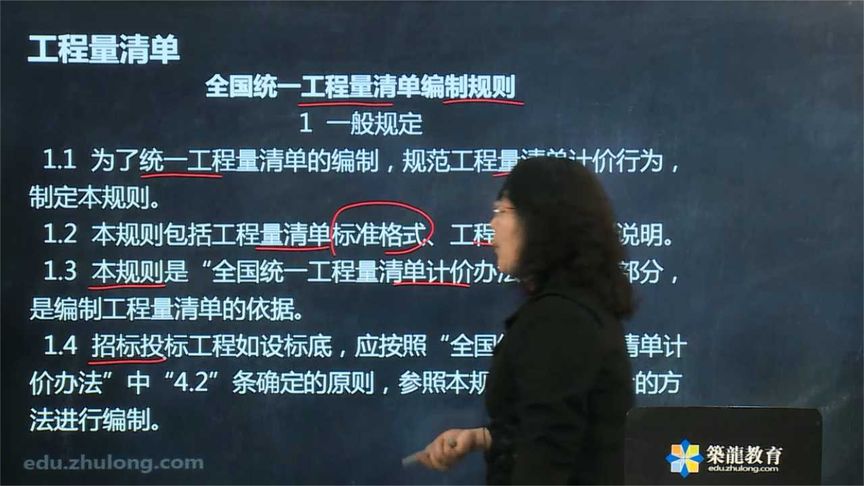 工程量清单
全国统一工程量清单编制规则
1 一般规定
1.1 为了统一工程量清单的编制，规范工程量清单计价行为，
制定本规则。
1.2 本规则包括工程量清单标准格式、工程 说明。
1.3 本规则是“全国统一工程量清单计价办法 部分，
是编制工程量清单的依据。
1.4 招标投标工程如设标底，应按照“全国 清单计
价办法”中“4.2”条确定的原则，参照本规 的方
法进行编制。
edu.zhulong.com
築龍教育
edu.zhulong.com